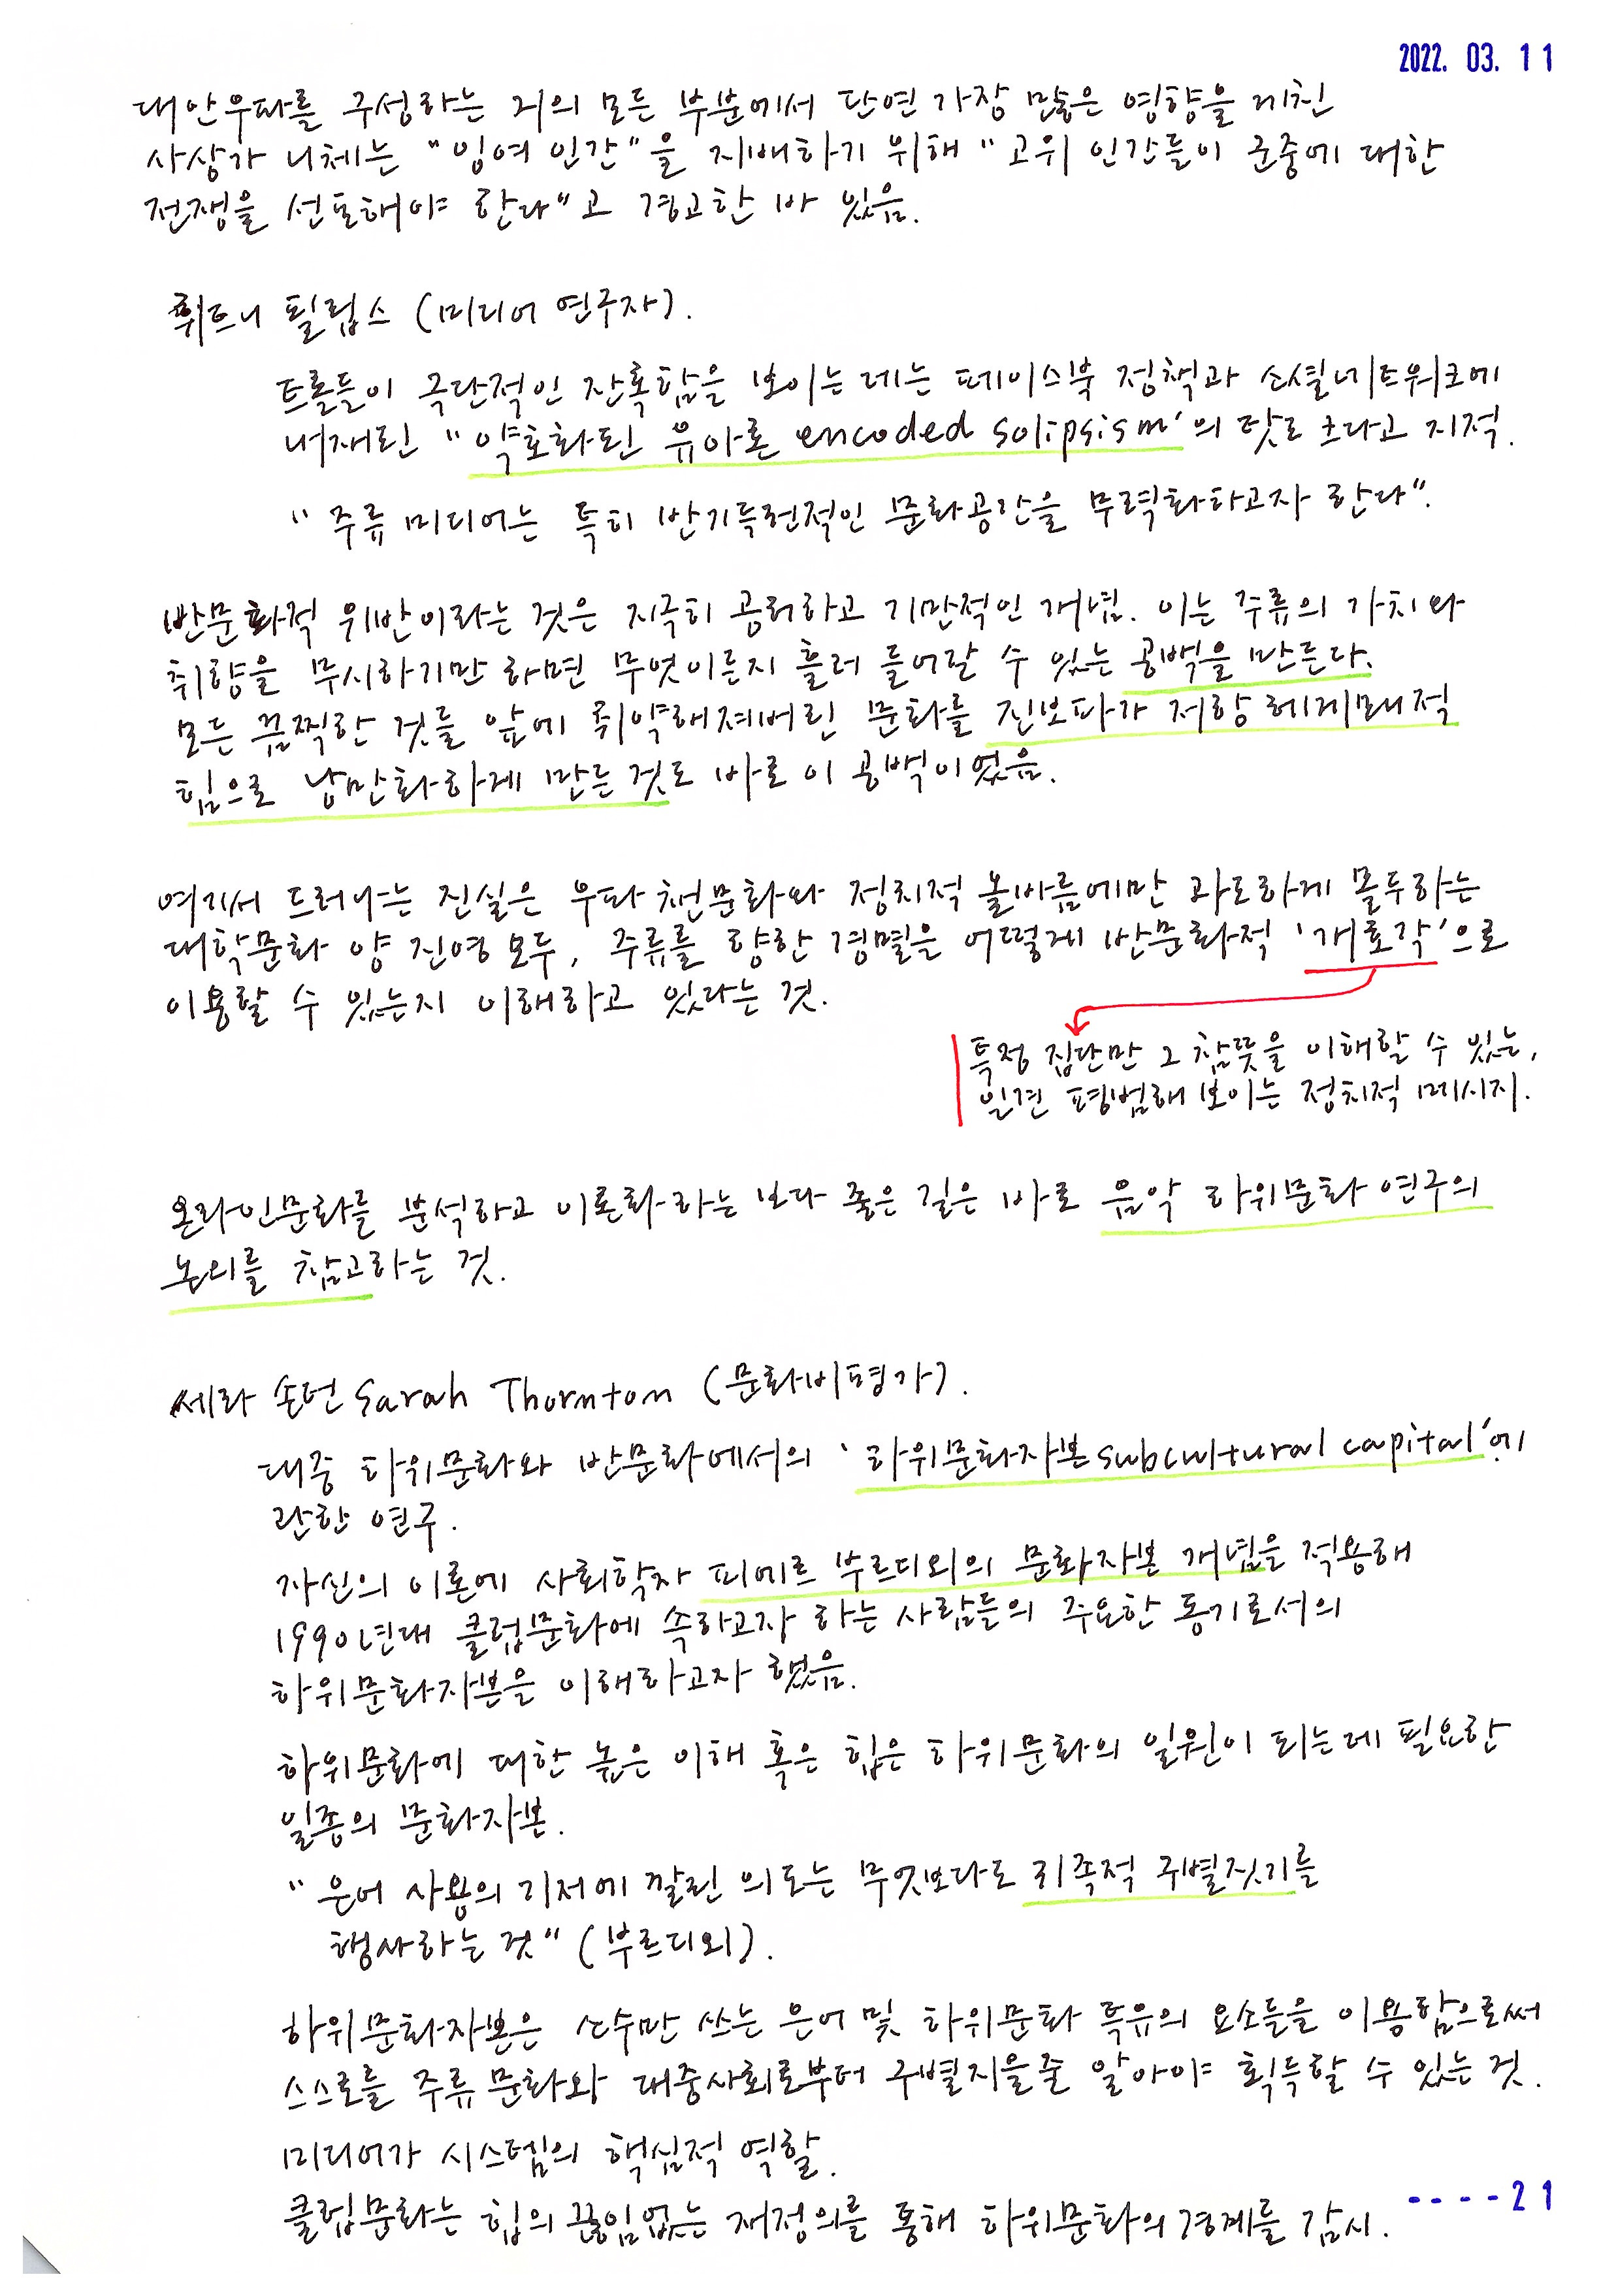 2022. 03. 11
대안우파를 구성하는 거의 모든 부분에서 단연 가장 많은 영향을 끼친
사상가 니체는 "잉여 인간"을 지배하기 위해 "고위 인간들이 군중에 대한
전쟁을 선포해야 한다"고 경고한 바 있음.
휘트니 필립스 (미디어 연구자).
트롤들이 극단적인 잔혹함을 보이는 데는 페이스북 정책과 소셜네트워크에
내재된 "약호화된 유아론 encoded solipsism'의 탓도 크다고 지적.
"주류 미디어는 특히 반기득권적인 문화공간을 무력화하고자 한다".
반문화적 위반이라는 것은 지극히 공허하고 기만적인 개념. 이는 주류의 가치와
취향을 무시하기만 하면 무엇이든지 흘러 들어갈 수 있는 공백을 만든다.
모든 끔찍한 것들 앞에 취약해져버린 문화를 진보파가 저항 헤게모니적
힘으로 낭만화하게 만든 것도 바로 이 공백이었음.
여기서 드러나는 진실은 우파 챈문화와 정치적 올바름에만 과도하게 몰두하는
대학문화 양 진영 모두, 주류를 향한 경멸을 어떻게 반문화적 '개호각'으로
이용할 수 있는지 이해하고 있다는 것.
특정 집단만 그 참뜻을 이해할 수 있는,
일견 평범해 보이는 정치적 메시지.
온라인문화를 분석하고 이론화하는 보다 좋은 길은 바로 음악 하위문화 연구의
논의를 참고하는 것.
세라 손턴 Sarah Thornton (문화비평가).
대중 하위문화와 반문화에서의 '하위문화자본 subcultural capital'에
관한 연구.
자신의 이론에 사회학자 피에르 부르디외의 문화자본 개념을 적용해
1990년대 클럽문화에 속하고자 하는 사람들의 주요한 동기로서의
하위문화자본을 이해하고자 했음.
하위문화에 대한 높은 이해 혹은 힙은 하위문화의 일원이 되는데 필요한
일종의 문화자본.
"은어 사용의 기저에 깔린 의도는 무엇보다도 귀족적 구별짓기를
행사하는 것" (부르디외).
하위문화자본은 소수만 쓰는 은어 및 하위문화 특유의 요소들을 이용함으로써
스스로를 주류문화와 대중사회로부터 구별지을줄 알아야 획득할 수 있는 것.
미디어가 시스템의 핵심적 역할.
클럽문화는 힙의 끊임없는 재정의를 통해 하위문화의 경계를 감시.
----21